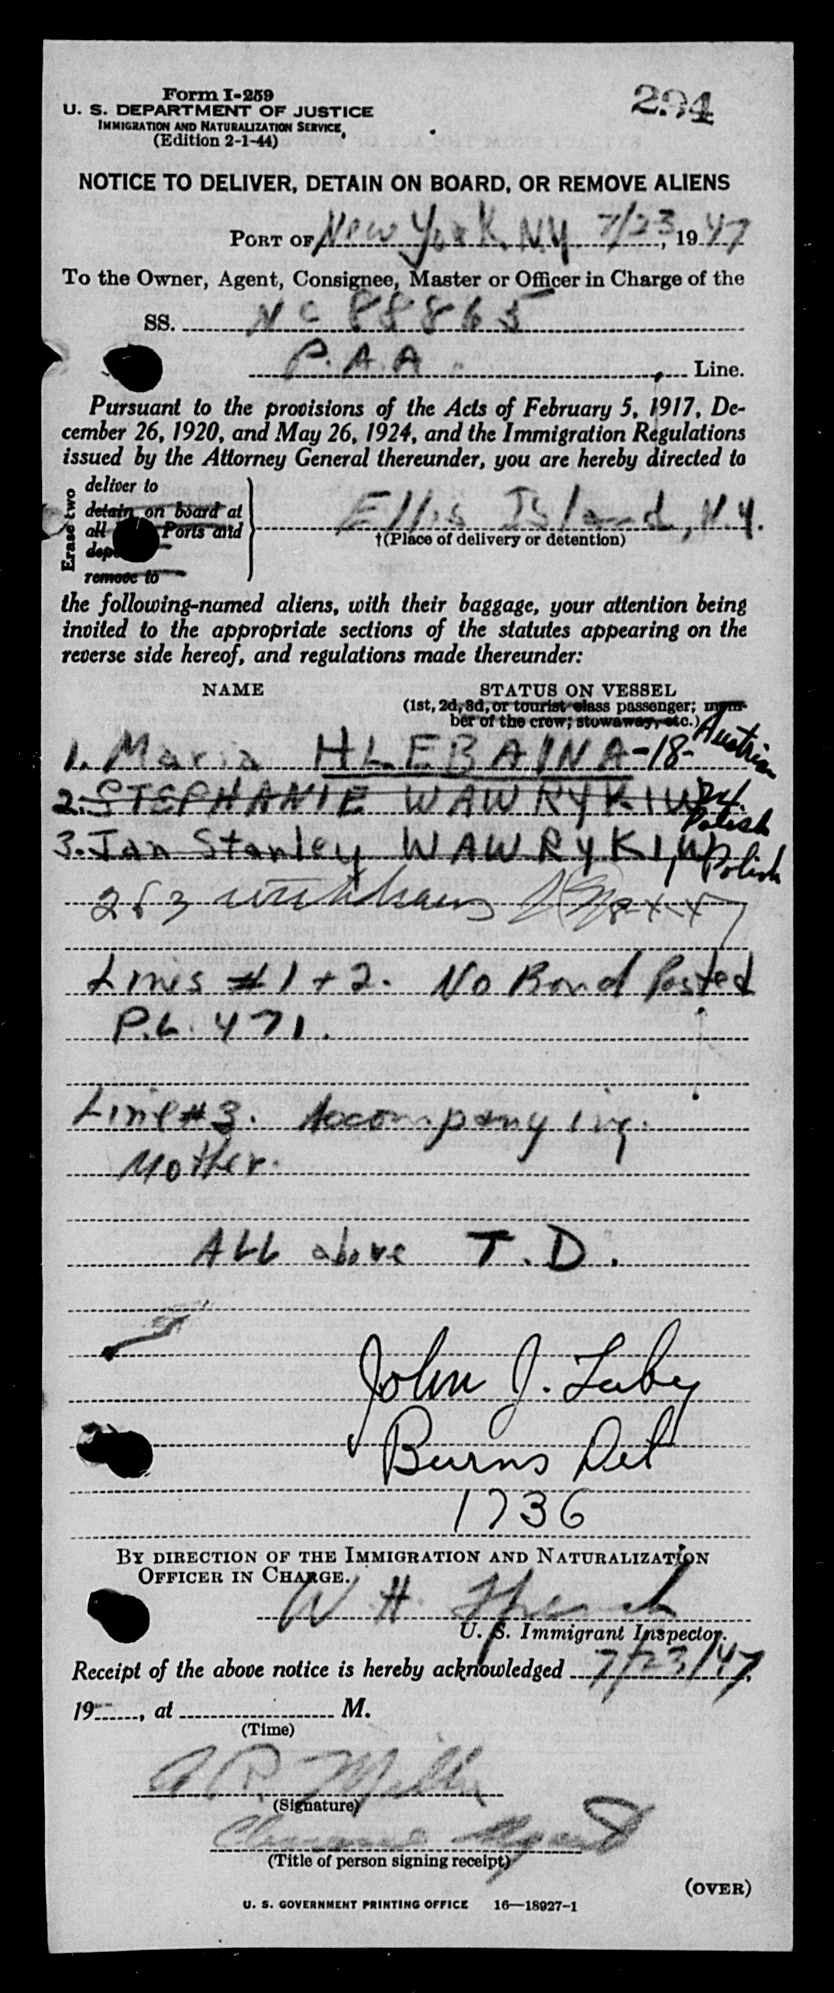 Form I-259
U. S. DEPARTMENT OF JUSTICE
IMMIGRATION AND NATURALIZATION SERVICE
(Edition 2-1-44)
294
NOTICE TO DELIVER, DETAIN ON BOARD, OR REMOVE ALIENS
PORT OF New York, N.Y. 7/23, 1947
To the Owner, Agent, Consignee, Master or Officer in Charge of the
SS. NC 88865
P.A.A. , Line.
Pursuant to the provisions of the Acts of February 5, 1917, De-
cember 26, 1920, and May 26, 1924, and the Immigration Regulations
issued by the Attorney General thereunder, you are hereby directed to
Erase two
deliver to
detain on board at
all Ports and
remove to
Ellis Island, N.Y.
†(Place of delivery or detention)
the following-named aliens, with their baggage, your attention being
invited to the appropriate sections of the statutes appearing on the
reverse side hereof, and regulations made thereunder:
NAME STATUS ON VESSEL
(1st, 2d, 3d, or tourist class passenger; mem-
ber of the crew; stowaway, etc.)
1. Maria HLEBAINA -18- Austrian
2. STEPHANIE WAWRYKIW 24. Polish
3. Jan Stanley WAWRYKIW, Polish
2 & 3
Lines #1 + 2. No Bond Posted
P.L. 471.
Line #3. Accompanying
Mother.
ALL above T.D.
John J. Luby
Burns Det
1736
BY DIRECTION OF THE IMMIGRATION AND NATURALIZATION
OFFICER IN CHARGE.
W. H.
U. S. Immigrant Inspector.
Receipt of the above notice is hereby acknowledged 7/23/47,
19 , at M.
(Time)
(Signature)
(Title of person signing receipt)
(OVER)
U. S. GOVERNMENT PRINTING OFFICE 16—18927-1